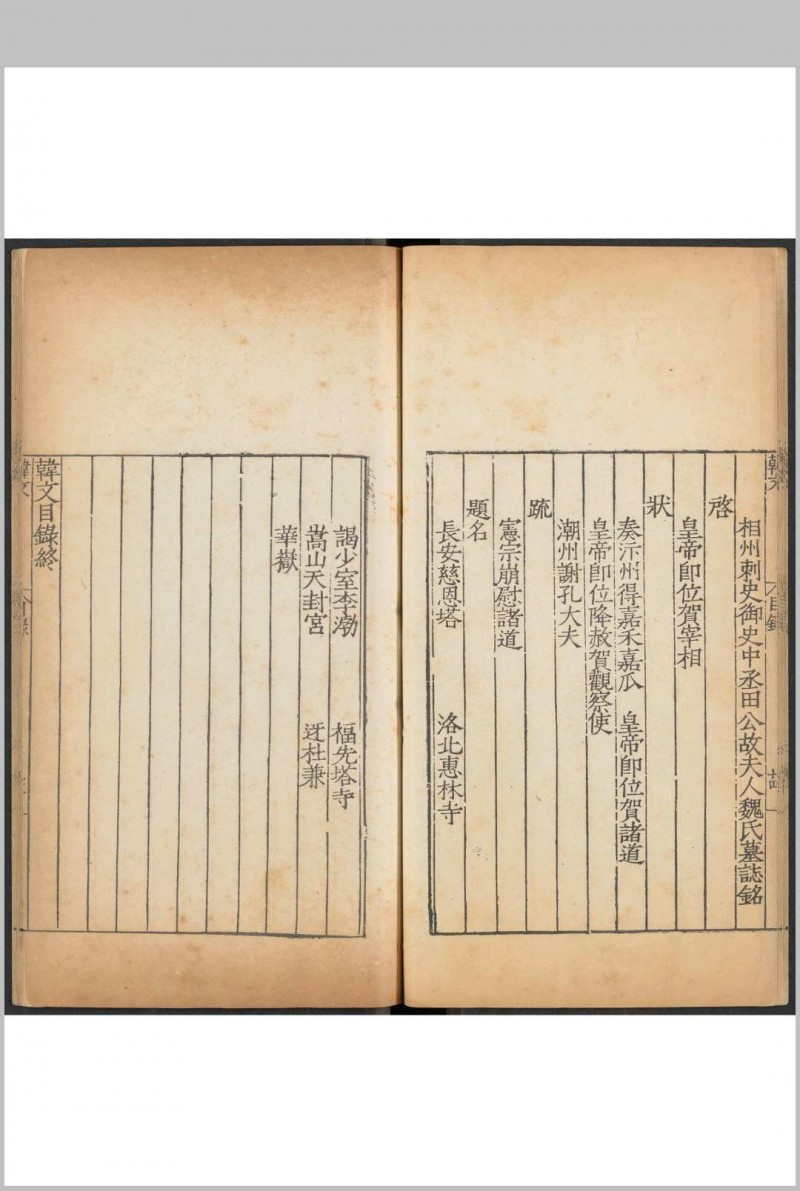 相州刺史御史中丞田公故夫人魏氏墓誌銘
啓
皇帝即位賀宰相
狀
奏汴州得嘉禾嘉瓜　皇帝即位賀諸道
皇帝即位降赦賀觀察使
潮州謝孔大夫
疏
憲宗崩慰諸道
題名
長安慈恩塔　洛北惠林寺
謁少室李渤　福先塔寺
嵩山天封宮　迓杜兼
華嶽
韓文目錄終